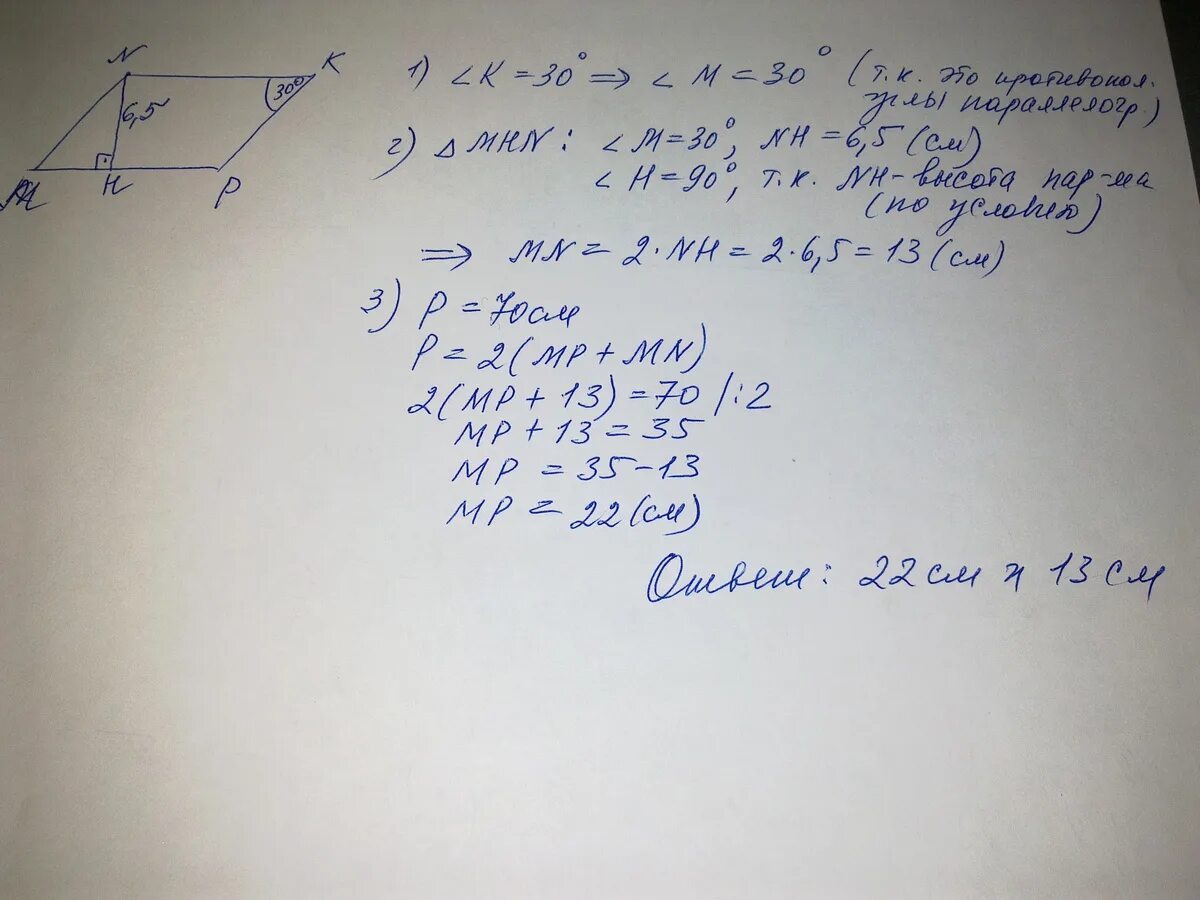 N
K
30°
6,5
M
H
P
1) ∠K = 30° ⇒ ∠M = 30° (т.к. это противопол.
углы параллелогр.)
2) △MHN: ∠M = 30°, NH = 6,5 (см)
∠H = 90°, т.к. NH - высота пар-ма
(по условию)
⇒ MN = 2·NH = 2·6,5 = 13 (см)
3) P = 70см
P = 2(MP + MN)
2(MP + 13) = 70 /:2
MP + 13 = 35
MP = 35 - 13
MP = 22 (см)
Ответ: 22 см и 13 см